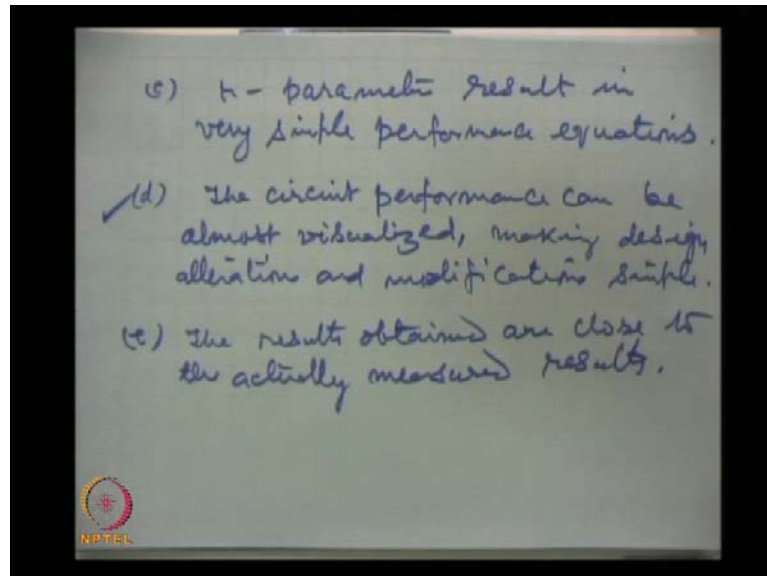 (c) r - parameter result in
very simple performance equations.
(d) The circuit performance can be
almost visualized, making design
alteration and modifications simple.
(e) The results obtained are close to
the actually measured results.
NPTEL